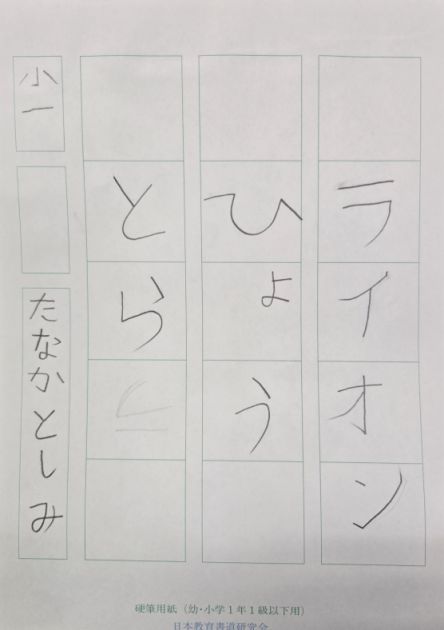 ライオン
ひょう
とら
小一
たなかとしみ
硬筆用紙（幼・小学１年１級以下用）
日本教育書道研究会